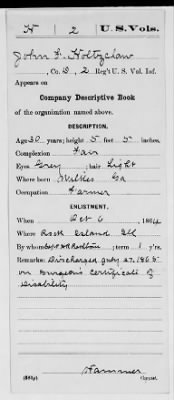 H 2 U.S. Vols.
John F. Holtzclaw
, Co. D, 2 Reg't U. S. Vol. Inf.
Appears on
Company Descriptive Book
of the organization named above.
DESCRIPTION.
Age 30 years; height 5 feet 5 inches.
Complexion Fair
Eyes Grey ; hair Light
Where born Wilkes Ga
Occupation Farmer
ENLISTMENT.
When Oct 6 , 1864
Where Rock Island Ill
By whom Capt ; term 1 y'rs.
Remarks: Discharged July 27, 1865
on Surgeons Certificate of
Disability
Hammer
(383g) Copyist.